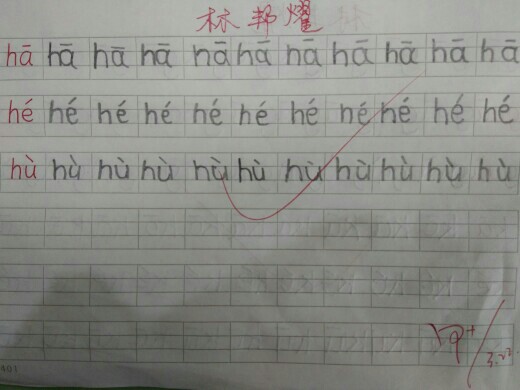 林邦耀
hā hā hā hā hā hā hā hā hā hā hā
hé hé hé hé hé hé hé hé hé hé hé
hù hù hù hù hù hù hù hù hù hù hù